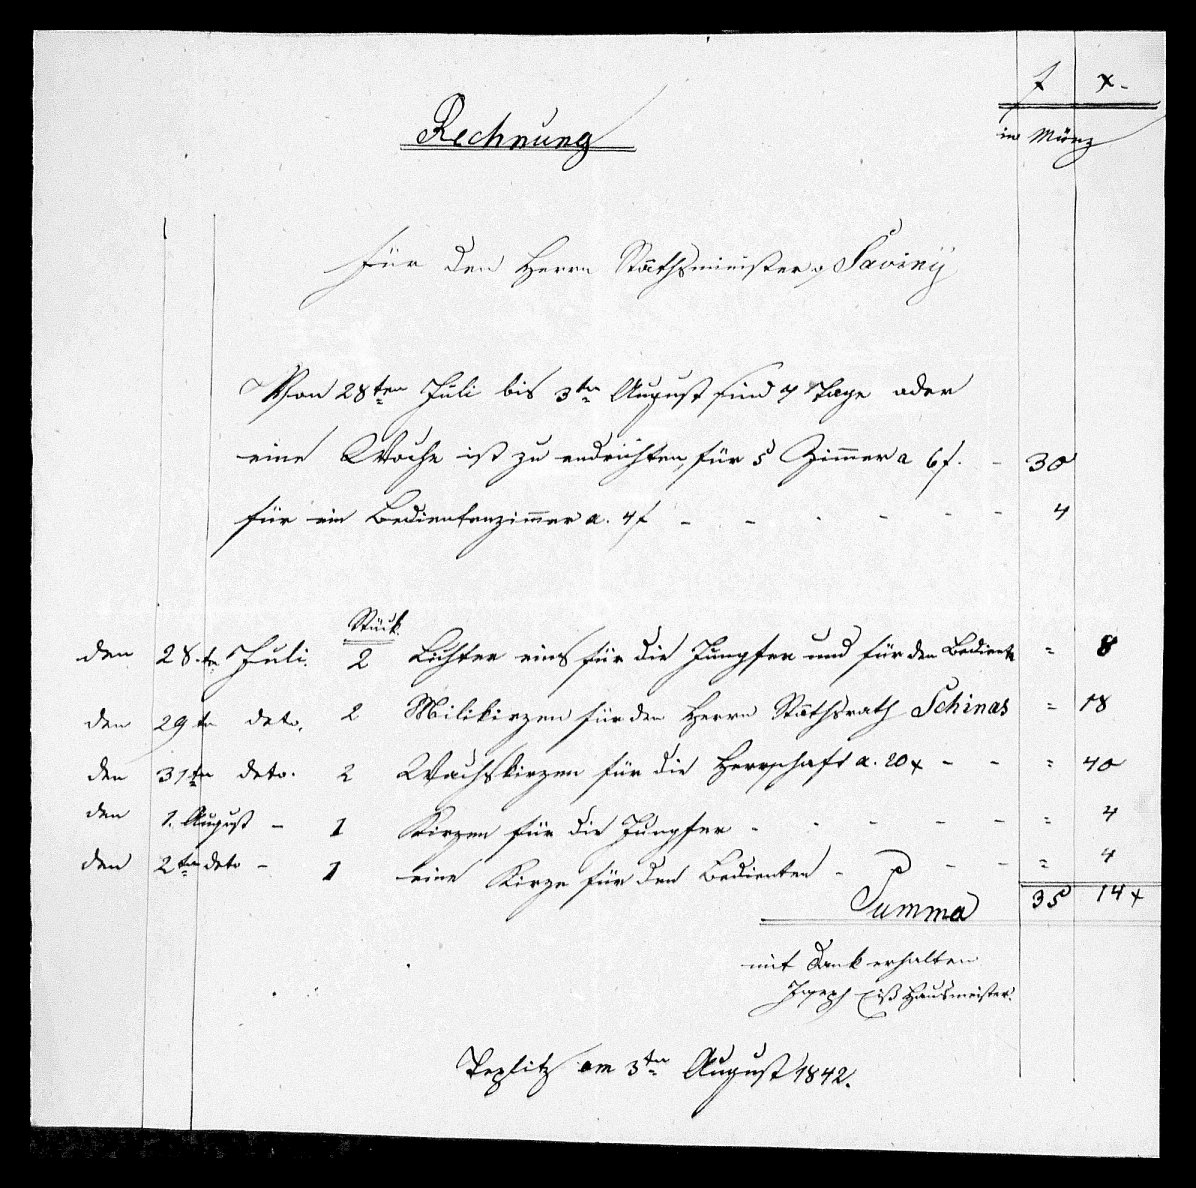 f x.
in Münz
Rechnung
Für den Herrn Stäthsminister v Saviny
Von 28ten Juli bis 3ten August sind 7 Tage oder
eine Woche ist zu endrichten, für 5 Zimmer a 6f. - 30
für ein Bedientenzimmer a. 4f - - - - - - 4
Stück
den 28.ten Juli 2 Lichter eins für die Jungfer und für den Bedienten = 8
den 29ten deto. 2 Milikirzen für den Herrn Stäthsrath Schinas = 18
den 31ten deto. 2 Wachskirzen für die Herrschaft a. 20x - - = 40
den 1. August - 1 Kirzen für die Jungfer - - - - - = 4
den 2ten deto - 1 eine Kirze für den Bedienten - - - = 4
Summa 35 14x
mit Dank erhalten
Joseph Hausmeister.
Teplitz am 3ten August 1842.